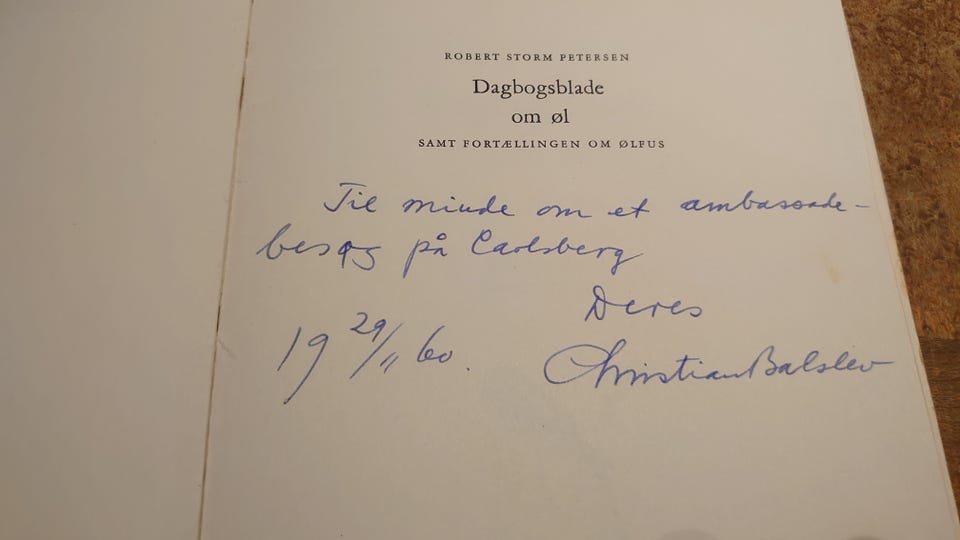 ROBERT STORM PETERSEN
Dagbogsblade
om øl
SAMT FORTÆLLINGEN OM ØLFUS
Til minde om et ambassade-
besøg på Carlsberg
Deres
19 29/11 60.
Christian Balslev